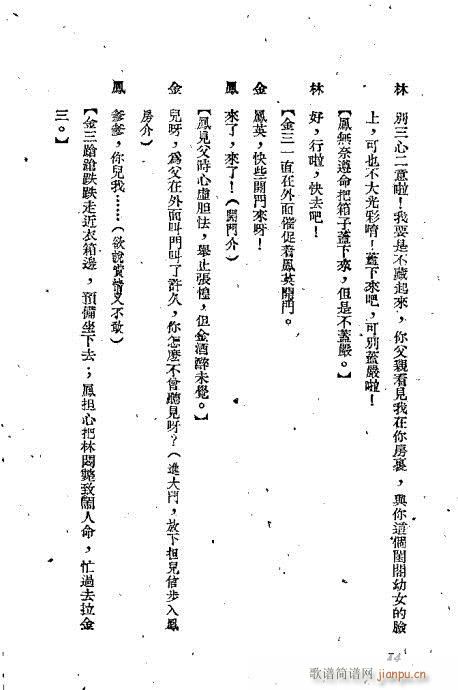 林　別三心二意啦！我要是不藏起來，你父親看見我在你房裏，與你這個閨閣幼女的臉
上，可也不大光彩唷！蓋下來吧，可別蓋嚴啦！
【鳳無奈遵命把箱子蓋下來，但是不蓋嚴。】
林　好，行啦，快去吧！
【金三一直在外面催促着鳳英開門。
金　鳳英，快些開門來呀！
鳳　來了，來了！（開門介）
【鳳見父時心虛胆怯，舉止張惶，但金酒醉未覺。】
金　兒呀，爲父在外面叫門叫了許久，你怎麽不曾聽見呀？（進大門，放下担兒信步入鳳
房介）
鳳　爹爹，你兒我……（欲說實情又不敢）
【金三蹌蹌跌跌走近衣箱邊，預備坐下去；鳳担心把林悶斃致鬧人命，忙過去拉金
三。】
24
歌谱简谱网
jianpu.cn